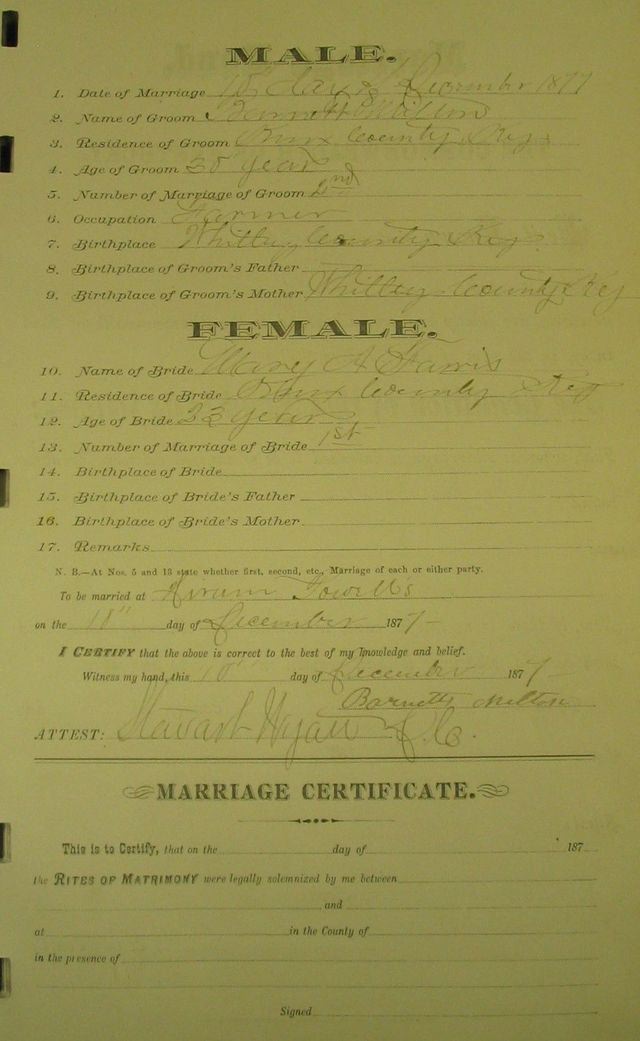 MALE.
1. Date of Marriage 18 day of December 1877
2. Name of Groom Barnett Milton
3. Residence of Groom Knox County Ky
4. Age of Groom 38 years
5. Number of Marriage of Groom 2nd
6. Occupation Farmer
7. Birthplace Whitley County Ky
8. Birthplace of Groom's Father
9. Birthplace of Groom's Mother Whitley County Ky
FEMALE.
10. Name of Bride Mary A Farris
11. Residence of Bride Knox County Ky
12. Age of Bride 23 years
13. Number of Marriage of Bride 1st
14. Birthplace of Bride
15. Birthplace of Bride's Father
16. Birthplace of Bride's Mother
17. Remarks
N. B.—At Nos. 5 and 13 state whether first, second, etc., Marriage of each or either party.
To be married at Hiram Powell's
on the 18" day of December 1877
I CERTIFY that the above is correct to the best of my knowledge and belief.
Witness my hand, this day of December 1877
Barnett Milton
ATTEST: Stewart Wyatt
MARRIAGE CERTIFICATE.
This is to Certify, that on the day of 187
the RITES OF MATRIMONY were legally solemnized by me between
and
at in the County of
in the presence of
Signed